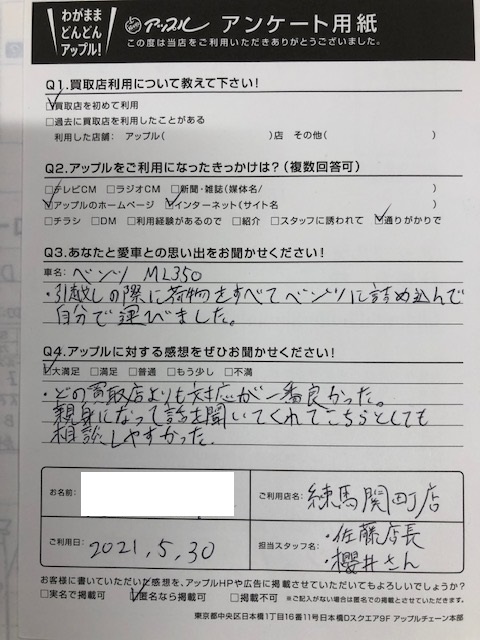 わがまま
どんどん
アップル!
アップル アンケート用紙
この度は当店をご利用いただきありがとうございました。
Q1.買取店利用について教えて下さい!
☑買取店を初めて利用
□過去に買取店を利用したことがある
利用した店舗: アップル( )店 その他( )
Q2.アップルをご利用になったきっかけは?(複数回答可)
□テレビCM □ラジオCM □新聞・雑誌(媒体名/ )
☑アップルのホームページ ☑インターネット(サイト名 )
□チラシ □DM □利用経験があるので □紹介 □スタッフに誘われて ☑通りがかりで
Q3.あなたと愛車との思い出をお聞かせください!
車名: ベンツ ML350
・引越しの際に荷物をすべてベンツに詰め込んで
自分で運びました。
Q4.アップルに対する感想をぜひお聞かせください!
☑大満足 □満足 □普通 □もう少し □不満
・どの買取店よりも対応が一番良かった。
親身になって話を聞いてくれてこちらとしても
相談しやすかった。
お名前:
ご利用店名: 練馬関町店
ご利用日: 2021.5.30
担当スタッフ名: ・佐藤店長
・櫻井さん
お客様に書いていただいた感想を、アップルHPや広告に掲載させていただいてもよろしいでしょうか?
□実名で掲載可 ☑匿名なら掲載可 □掲載不可 ※ご記入がない場合は匿名での掲載とさせていただきます。
東京都中央区日本橋1丁目16番11号日本橋Dスクエア9F アップルチェーン本部